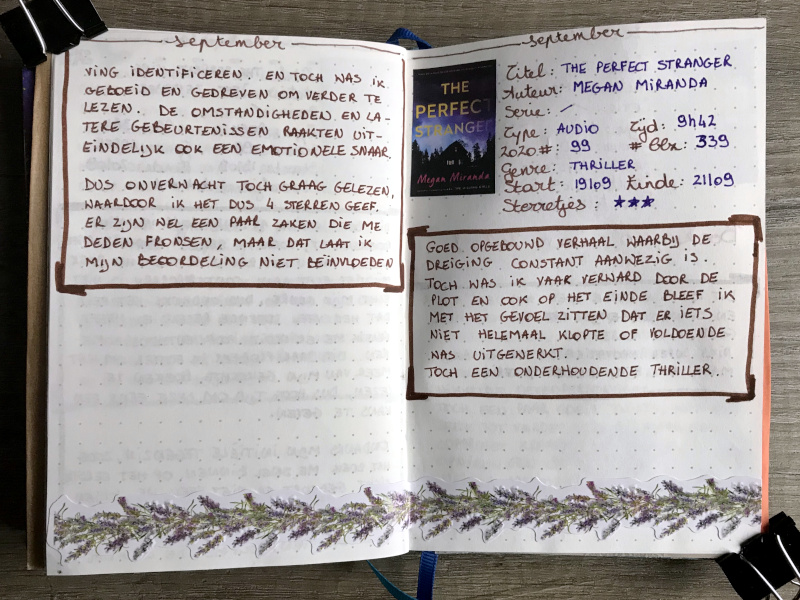 september
VING IDENTIFICEREN. EN TOCH WAS IK
GEBOEID EN GEDREVEN OM VERDER TE
LEZEN. DE OMSTANDIGHEDEN EN LA-
TERE GEBEURTENISSEN RAAKTEN UIT-
EINDELIJK OOK EEN EMOTIONELE SNAAR.
DUS ONVERWACHT TOCH GRAAG GELEZEN,
WAARDOOR IK HET DUS 4 STERREN GEEF.
ER ZIJN WEL EEN PAAR ZAKEN DIE ME
DEDEN FRONSEN, MAAR DAT LAAT IK
MIJN BEOORDELING NIET BEÏNVLOEDEN
september
THE
PERFECT
STRANGER
Megan Miranda
Titel: THE PERFECT STRANGER
Auteur: MEGAN MIRANDA
Serie: /
Type: AUDIO Tijd: 9h42
2020#: 99 # Blz.: 339
Genre: THRILLER
Start: 19/09 Einde: 21/09
Sterretjes: ★★★
GOED OPGEBOUND VERHAAL WAARBIJ DE
DREIGING CONSTANT AANWEZIG IS.
TOCH WAS IK VAAK VERWARD DOOR DE
PLOT EN OOK OP HET EINDE BLEEF IK
MET HET GEVOEL ZITTEN DAT ER IETS
NIET HELEMAAL KLOPTE OF VOLDOENDE
WAS UITGEWERKT.
TOCH EEN ONDERHOUDENDE THRILLER.